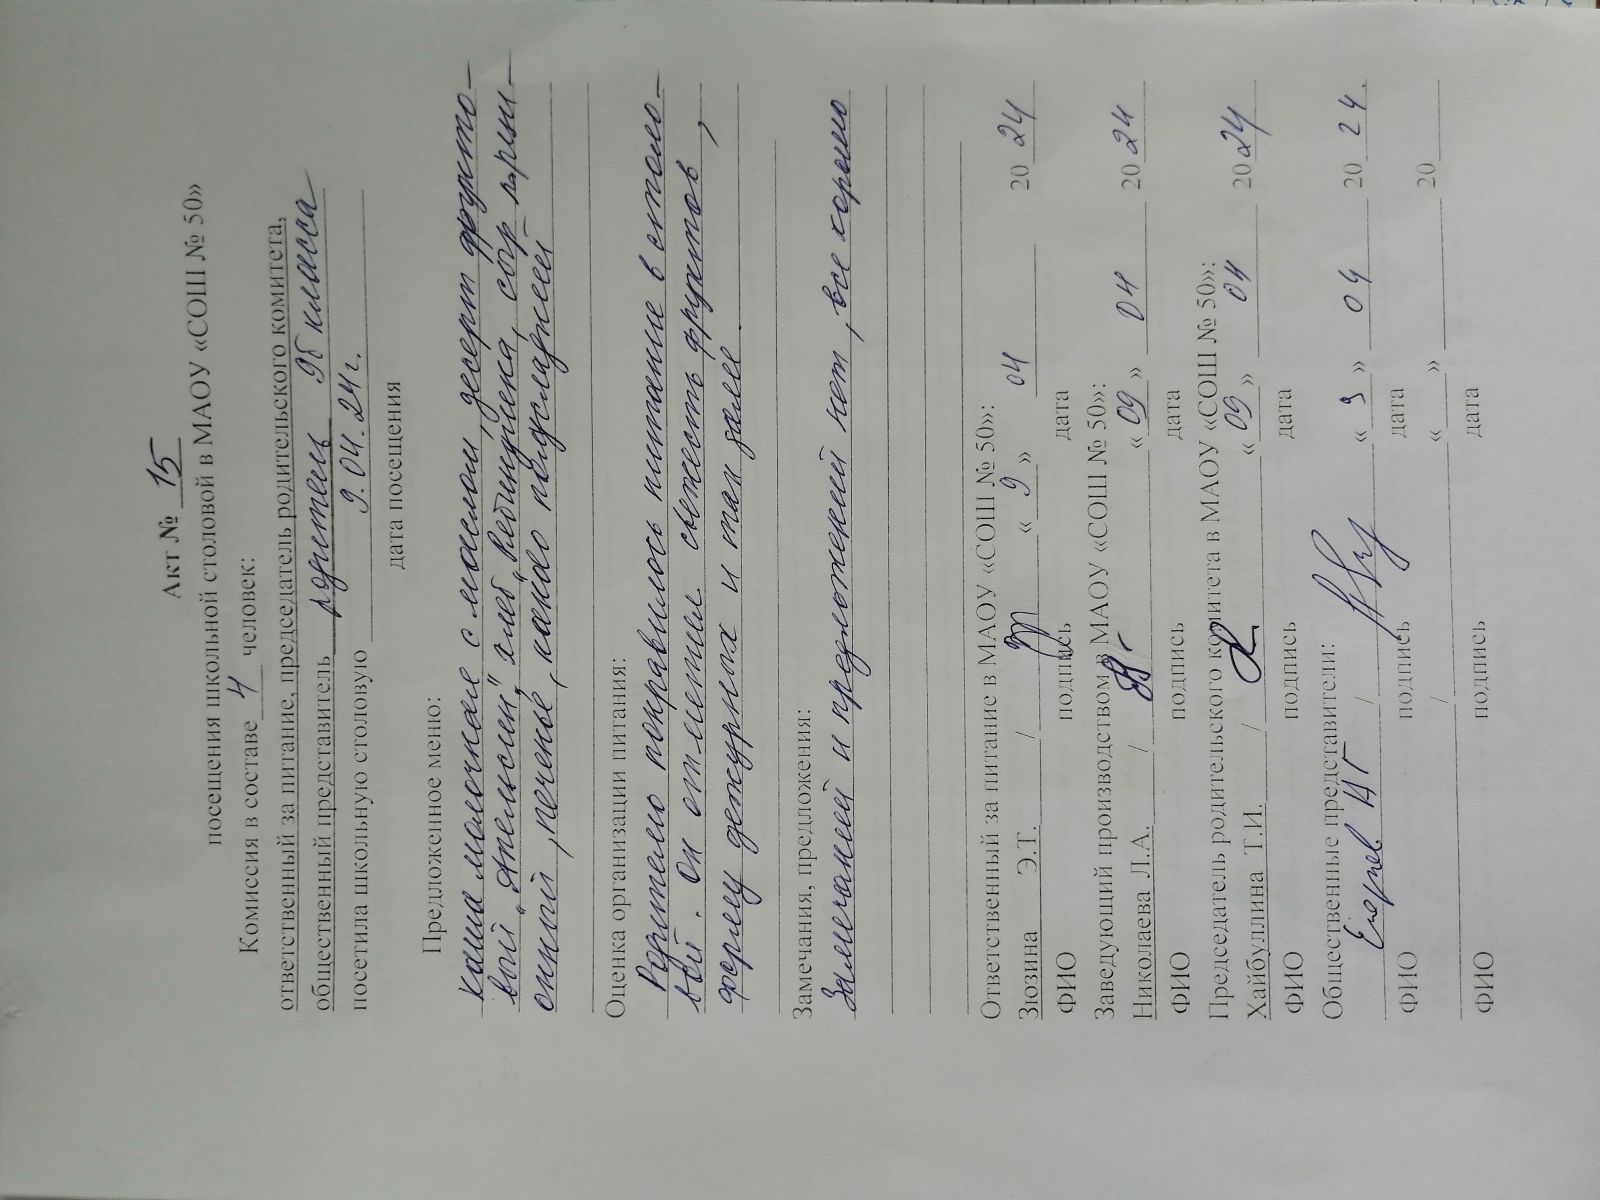 Акт № 15
посещения школьной столовой в МАОУ «СОШ № 50»
Комиссия в составе 4 человек:
ответственный за питание, председатель родительского комитета,
общественный представитель родитель 9б класса
посетила школьную столовую 9.04.24г.
дата посещения
Предложенное меню:
каша молочная с маслом, десерт фрукто-
вый "Апельсин", хлеб, сыр порци-
онный, печенье, какао
Оценка организации питания:
Родителю понравилось питание в столо-
вой. Он отметил свежесть фруктов,
форму дежурных и так далее.
Замечания, предложения:
Замечаний и предложений нет, все хорошо
Ответственный за питание в МАОУ «СОШ № 50»:
Зюзина Э.Т. / «9» 04 2024
ФИО подпись дата
Заведующий производством в МАОУ «СОШ № 50»:
Николаева Л.А. / «09» 04 2024
ФИО подпись дата
Председатель родительского комитета в МАОУ «СОШ № 50»:
Хайбуллина Т.И. / «09» 04 2024
ФИО подпись дата
Общественные представители:
/ «9» 04 2024.
ФИО подпись дата
/ « » 20
ФИО подпись дата